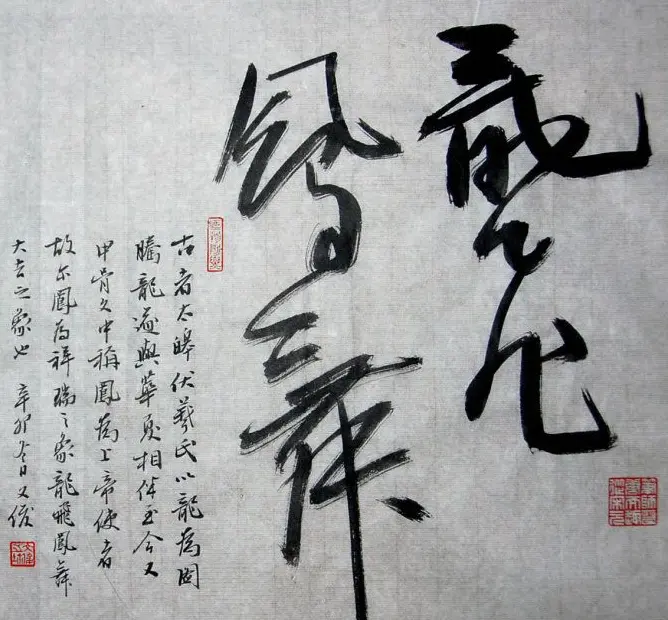 龍飛
鳳舞
古者太皞伏羲氏以龍為圖
騰龍遂與華夏相伴至今又
甲骨文中稱鳳為上帝使者
故尔鳳為祥瑞之象龍飛鳳舞
大吉之象也 辛卯春日又俊